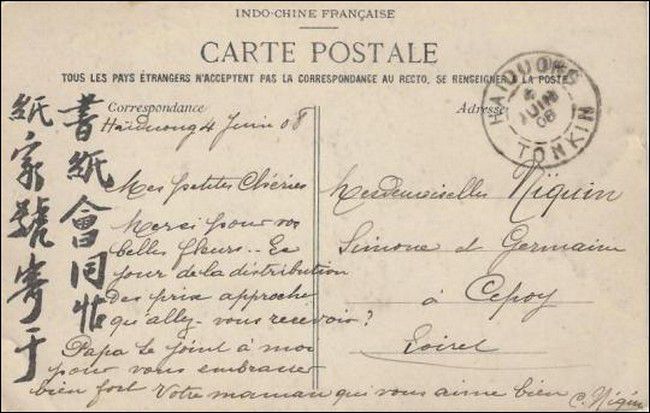 INDO-CHINE FRANÇAISE
CARTE POSTALE
TOUS LES PAYS ÉTRANGERS N'ACCEPTENT PAS LA CORRESPONDANCE AU RECTO, SE RENSEIGNER À LA POSTE
Correspondance
Haïduong 4 Juin 08
Mes petites Chéries
Merci pour vos
belles fleurs.. Le
jour de la distribution
des prix approche
qu'allez-vous recevoir?
Papa se joint à moi
pour vous embrasser
bien fort Votre maman qui vous aime bien C. Niquin
Adresse
Mesdemoiselles Niquin
Simone et Germaine
à Cepoy
Loiret
HAIDUONG
4
JUIN
08
TONKIN
書紙會同帖
紙家號寄于